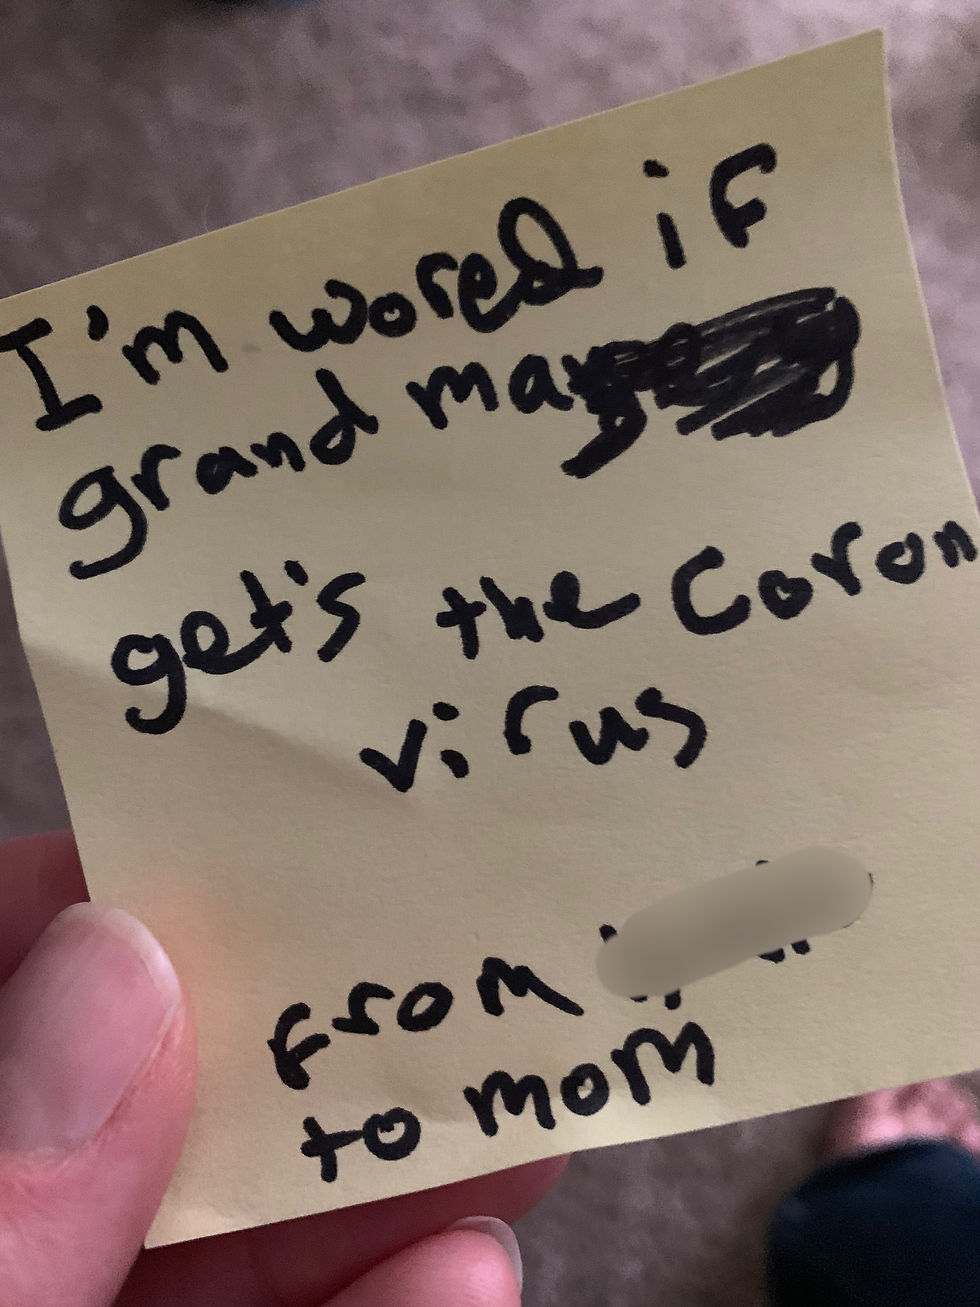 I'm wored if
grand ma
get's the Coron
virus
from
to mom